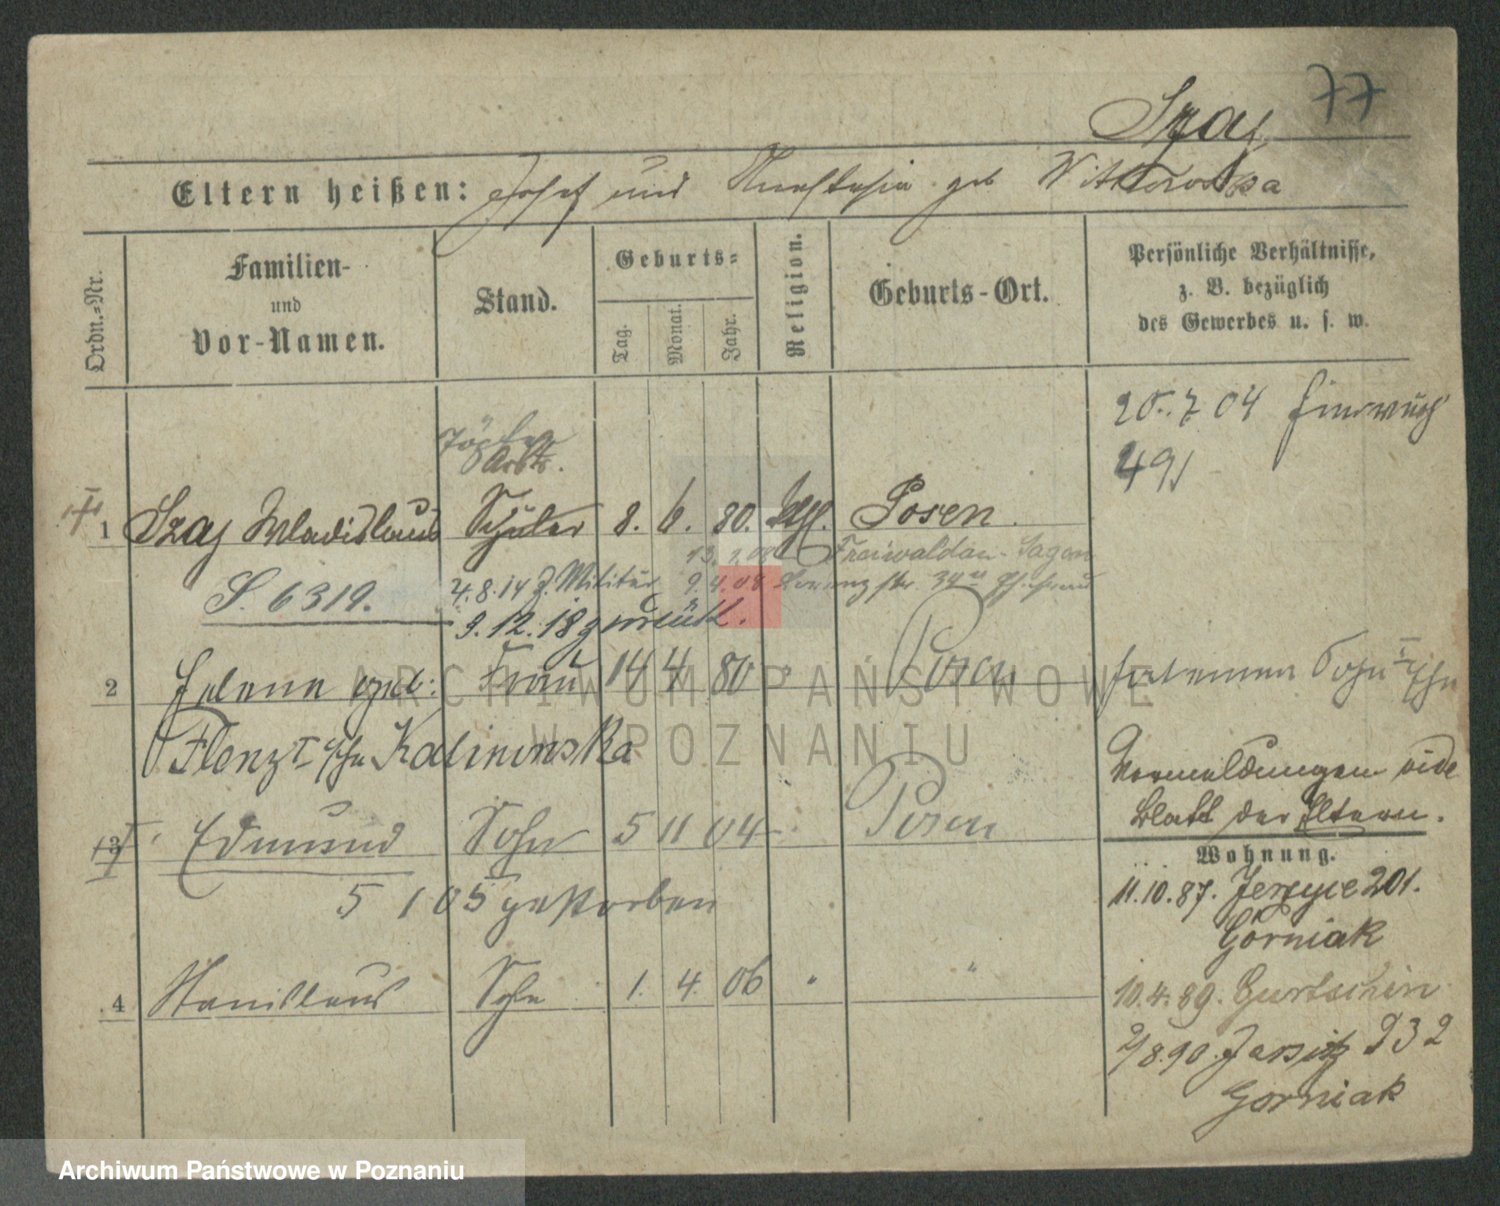 77
Szaj
Eltern heißen: Josef und Anastasia geb Witkowska
Ordn.-Nr.
Familien-
und
Vor-Namen.
Stand.
Geburts-
Tag.
Monat.
Jahr.
Religion.
Geburts-Ort.
Persönliche Verhältnisse,
z. B. bezüglich
des Gewerbes u. s. w.
20.7.04
491
Töpfer
Arbtr.
1 Szaj Wladislaus Schüler 8. 6. 80. kath. Posen.
Freiwaldau-Sagan
S. 6319. 4.8.14 z. Militär 9.4.08
9.12.18 zurück.
2 Helene geb: Frau 14 4 80 " Posen
Kalinowska
Vormeldungen vide
Blatt der Eltern.
3 Edmund Sohn 5 11 04 Posen
5 1 05 gestorben
Wohnung.
11.10.87. Jerzyce 201.
Górniak
4 Stanislaus Sohn 1. 4. 06 " "
10.4.89. Gurtschin
2/8.90. Jersitz 232
Gorniak
ARCHIWUM PAŃSTWOWE
W POZNANIU
Archiwum Państwowe w Poznaniu